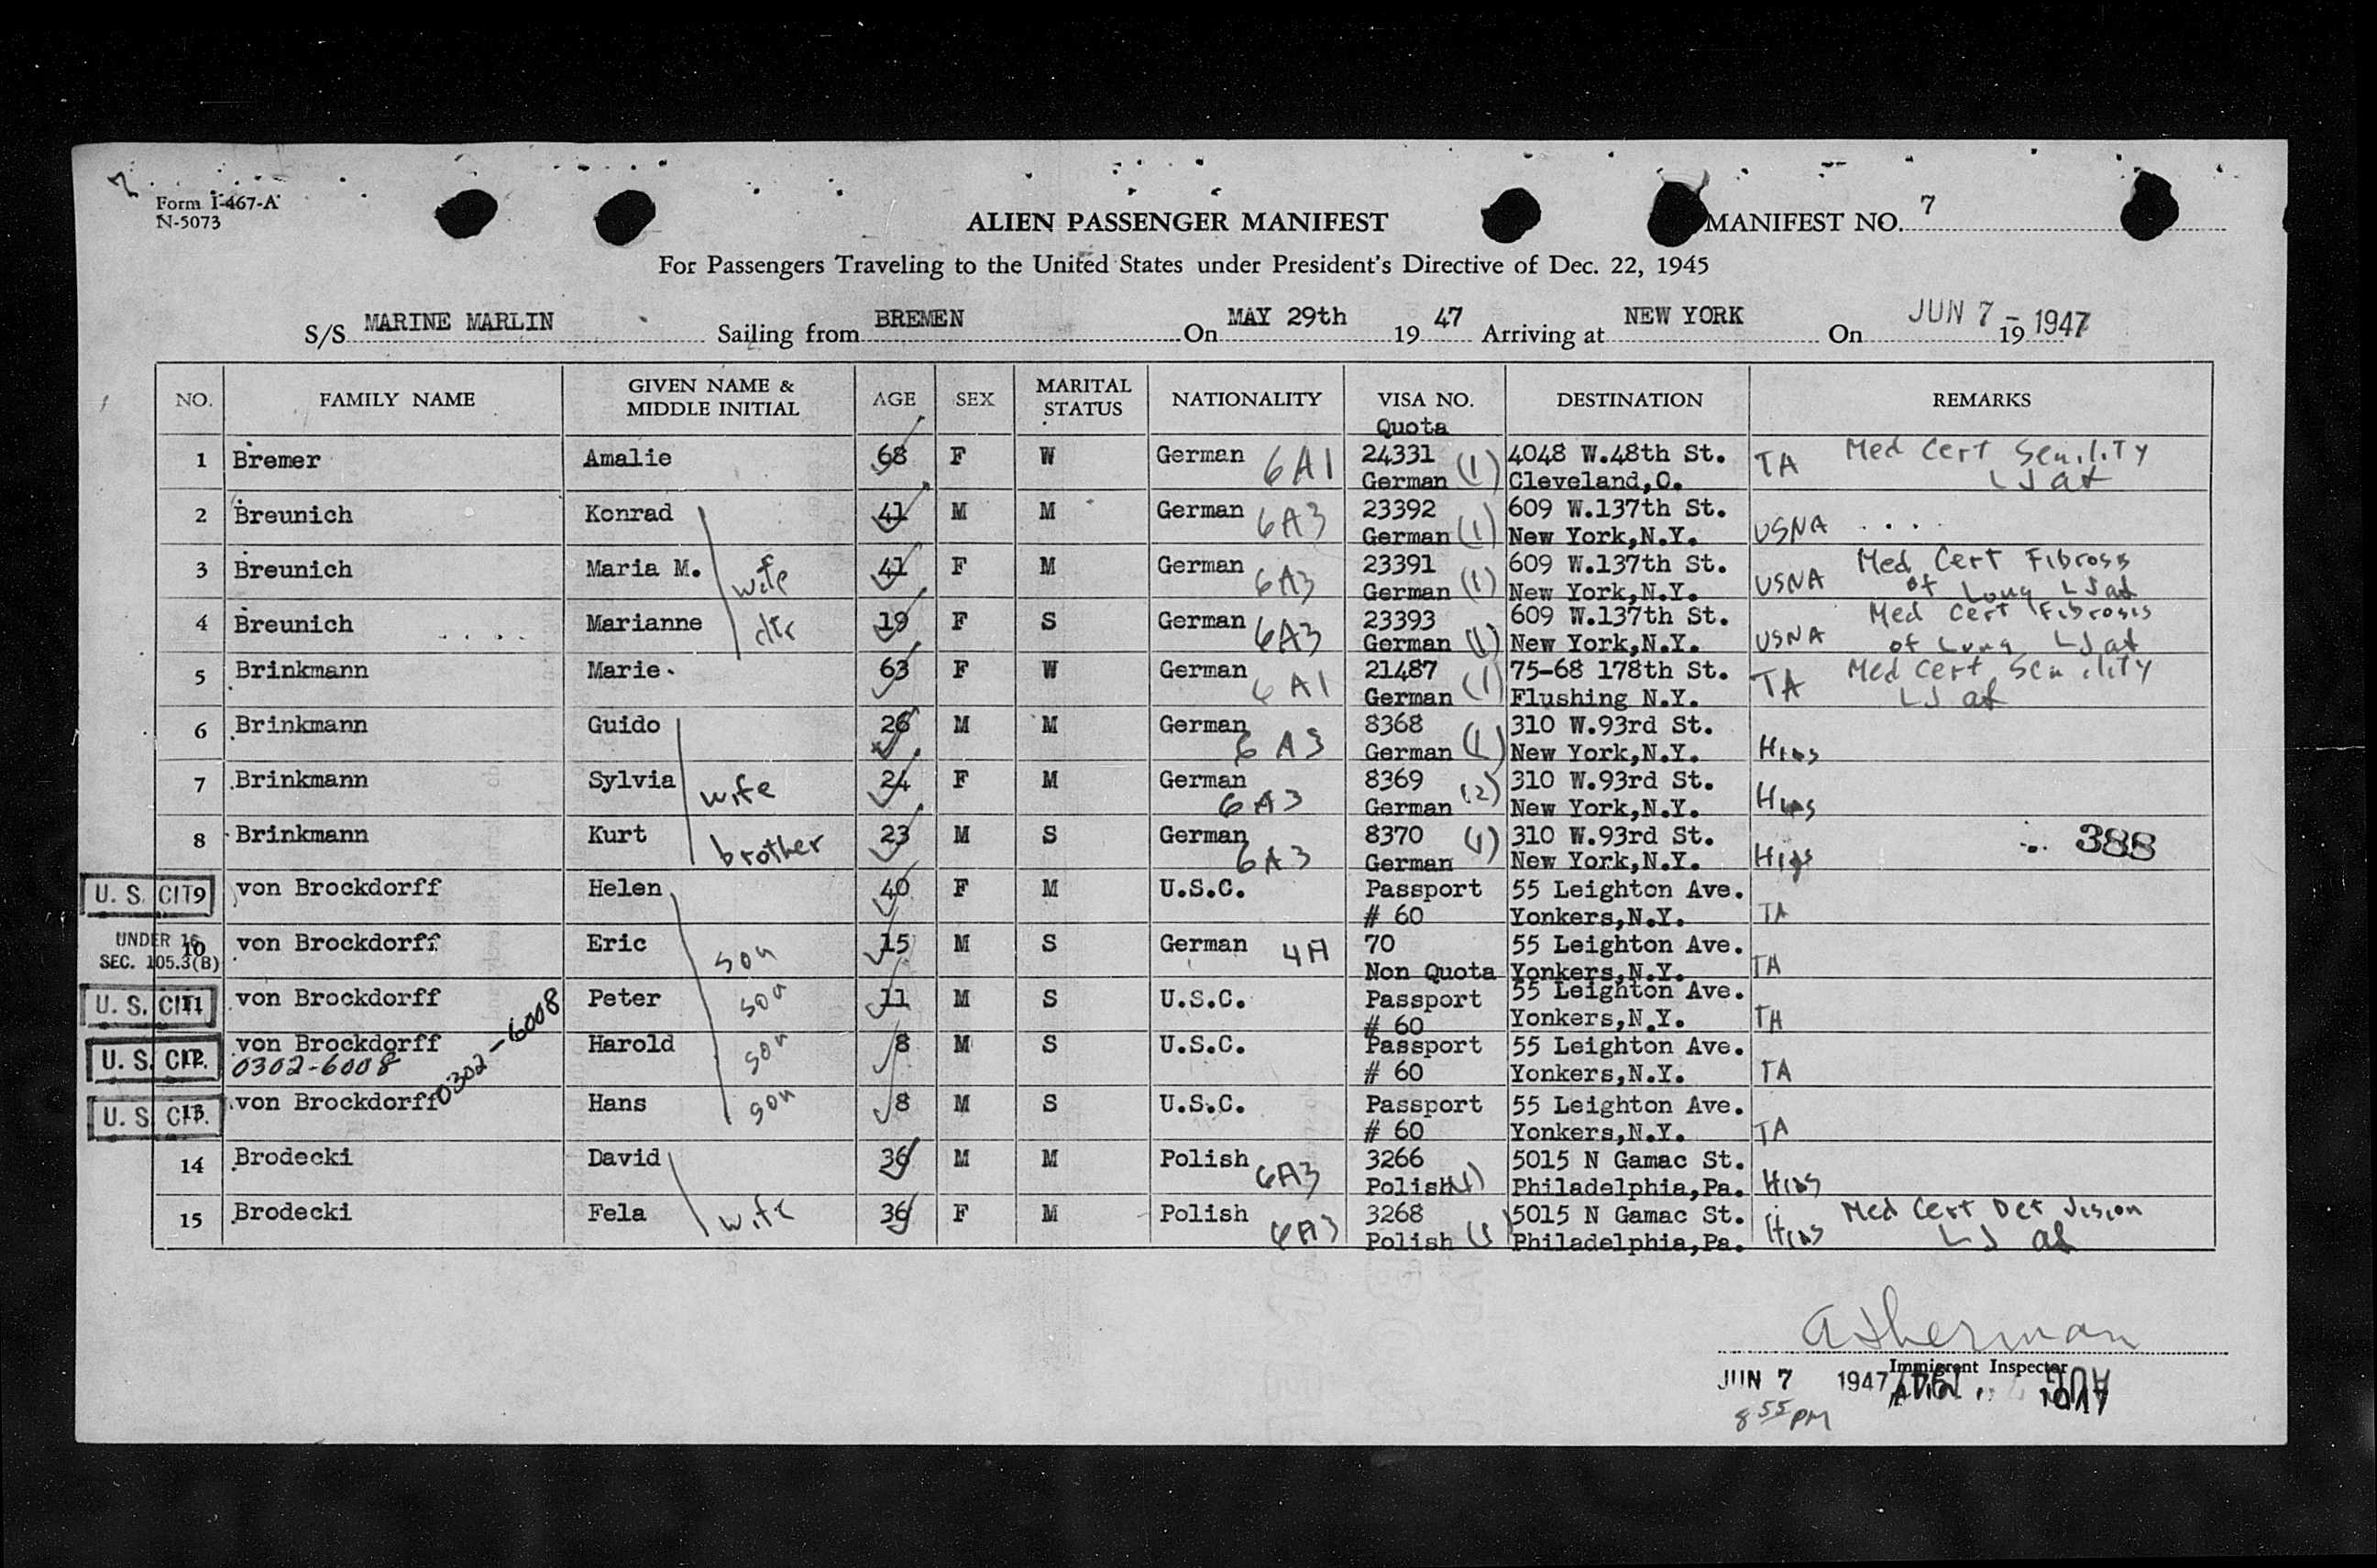 7
Form I-467-A
N-5073
ALIEN PASSENGER MANIFEST
MANIFEST NO. 7
For Passengers Traveling to the United States under President's Directive of Dec. 22, 1945
S/S MARINE MARLIN Sailing from BREMEN On MAY 29th 19 47 Arriving at NEW YORK On JUN 7 - 19 1947
NO. FAMILY NAME GIVEN NAME & MIDDLE INITIAL AGE SEX MARITAL STATUS NATIONALITY VISA NO. DESTINATION REMARKS
Quota
1 Bremer Amalie 68 F W German 6A1 24331 (1) 4048 W.48th St. TA Med Cert Senility
German Cleveland,O. LJ at
2 Breunich Konrad 41 M M German 6A3 23392 609 W.137th St.
German (1) New York,N.Y. USNA
3 Breunich Maria M. wife 41 F M German 6A3 23391 609 W.137th St. Med Cert Fibrosis
German (1) New York,N.Y. USNA of Lung LJ at
4 Breunich Marianne dtr 19 F S German 6A3 23393 609 W.137th St. Med Cert Fibrosis
German (1) New York,N.Y. USNA of Lung LJ at
5 Brinkmann Marie 63 F W German 6A1 21487 75-68 178th St. TA Med Cert Senility
German (1) Flushing N.Y. LJ at
6 Brinkmann Guido 26 M M German 6A3 8368 310 W.93rd St.
German (1) New York,N.Y. Hias
7 Brinkmann Sylvia wife 24 F M German 6A3 8369 (2) 310 W.93rd St.
German New York,N.Y. Hias
8 Brinkmann Kurt brother 23 M S German 6A3 8370 (1) 310 W.93rd St. 388
German New York,N.Y. Hias
U. S. CIT 9 von Brockdorff Helen 40 F M U.S.C. Passport 55 Leighton Ave.
# 60 Yonkers,N.Y. TA
UNDER 16 10 von Brockdorff Eric son 15 M S German 4A 70 55 Leighton Ave.
SEC. 105.3(B) Non Quota Yonkers,N.Y. TA
U. S. CIT 11 von Brockdorff Peter son 11 M S U.S.C. Passport 55 Leighton Ave.
# 60 Yonkers,N.Y. TA
U. S. CIT. 12 von Brockdorff Harold son 8 M S U.S.C. Passport 55 Leighton Ave.
0302-6008 # 60 Yonkers,N.Y. TA
0302-6008
U. S. CIT. 13 von Brockdorff Hans son 8 M S U.S.C. Passport 55 Leighton Ave.
# 60 Yonkers,N.Y. TA
14 Brodecki David 36 M M Polish 6A3 3266 5015 N Gamac St.
Polish (1) Philadelphia,Pa. Hias
15 Brodecki Fela wife 36 F M Polish 6A3 3268 5015 N Gamac St. Med Cert Def Vision
Polish (1) Philadelphia,Pa. Hias LJ at
A Sherman
Immigrant Inspector
JUN 7 1947
8 55 PM